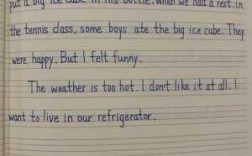 put a big ice cube in his bottle. When we had a rest in
the tennis class, some boys ate the big ice cube. They
were happy. But I felt funny.
The weather is too hot. I don't like it at all. I
want to live in our refrigerator.